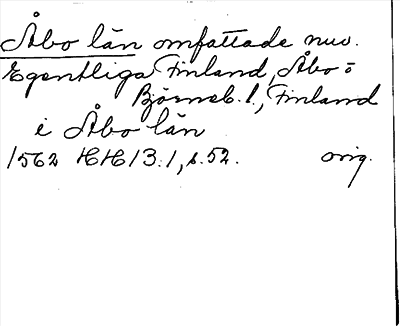 Åbo län omfattade nuv.
Egentliga Finland, Åbo o
Björneb. l., Finland
i Åbo län
1562 HH 13:1, s. 52. orig.